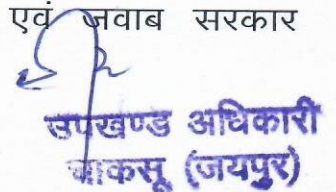 एवं जवाब सरकार
उपखण्ड अधिकारी
चाकसू (जयपुर)